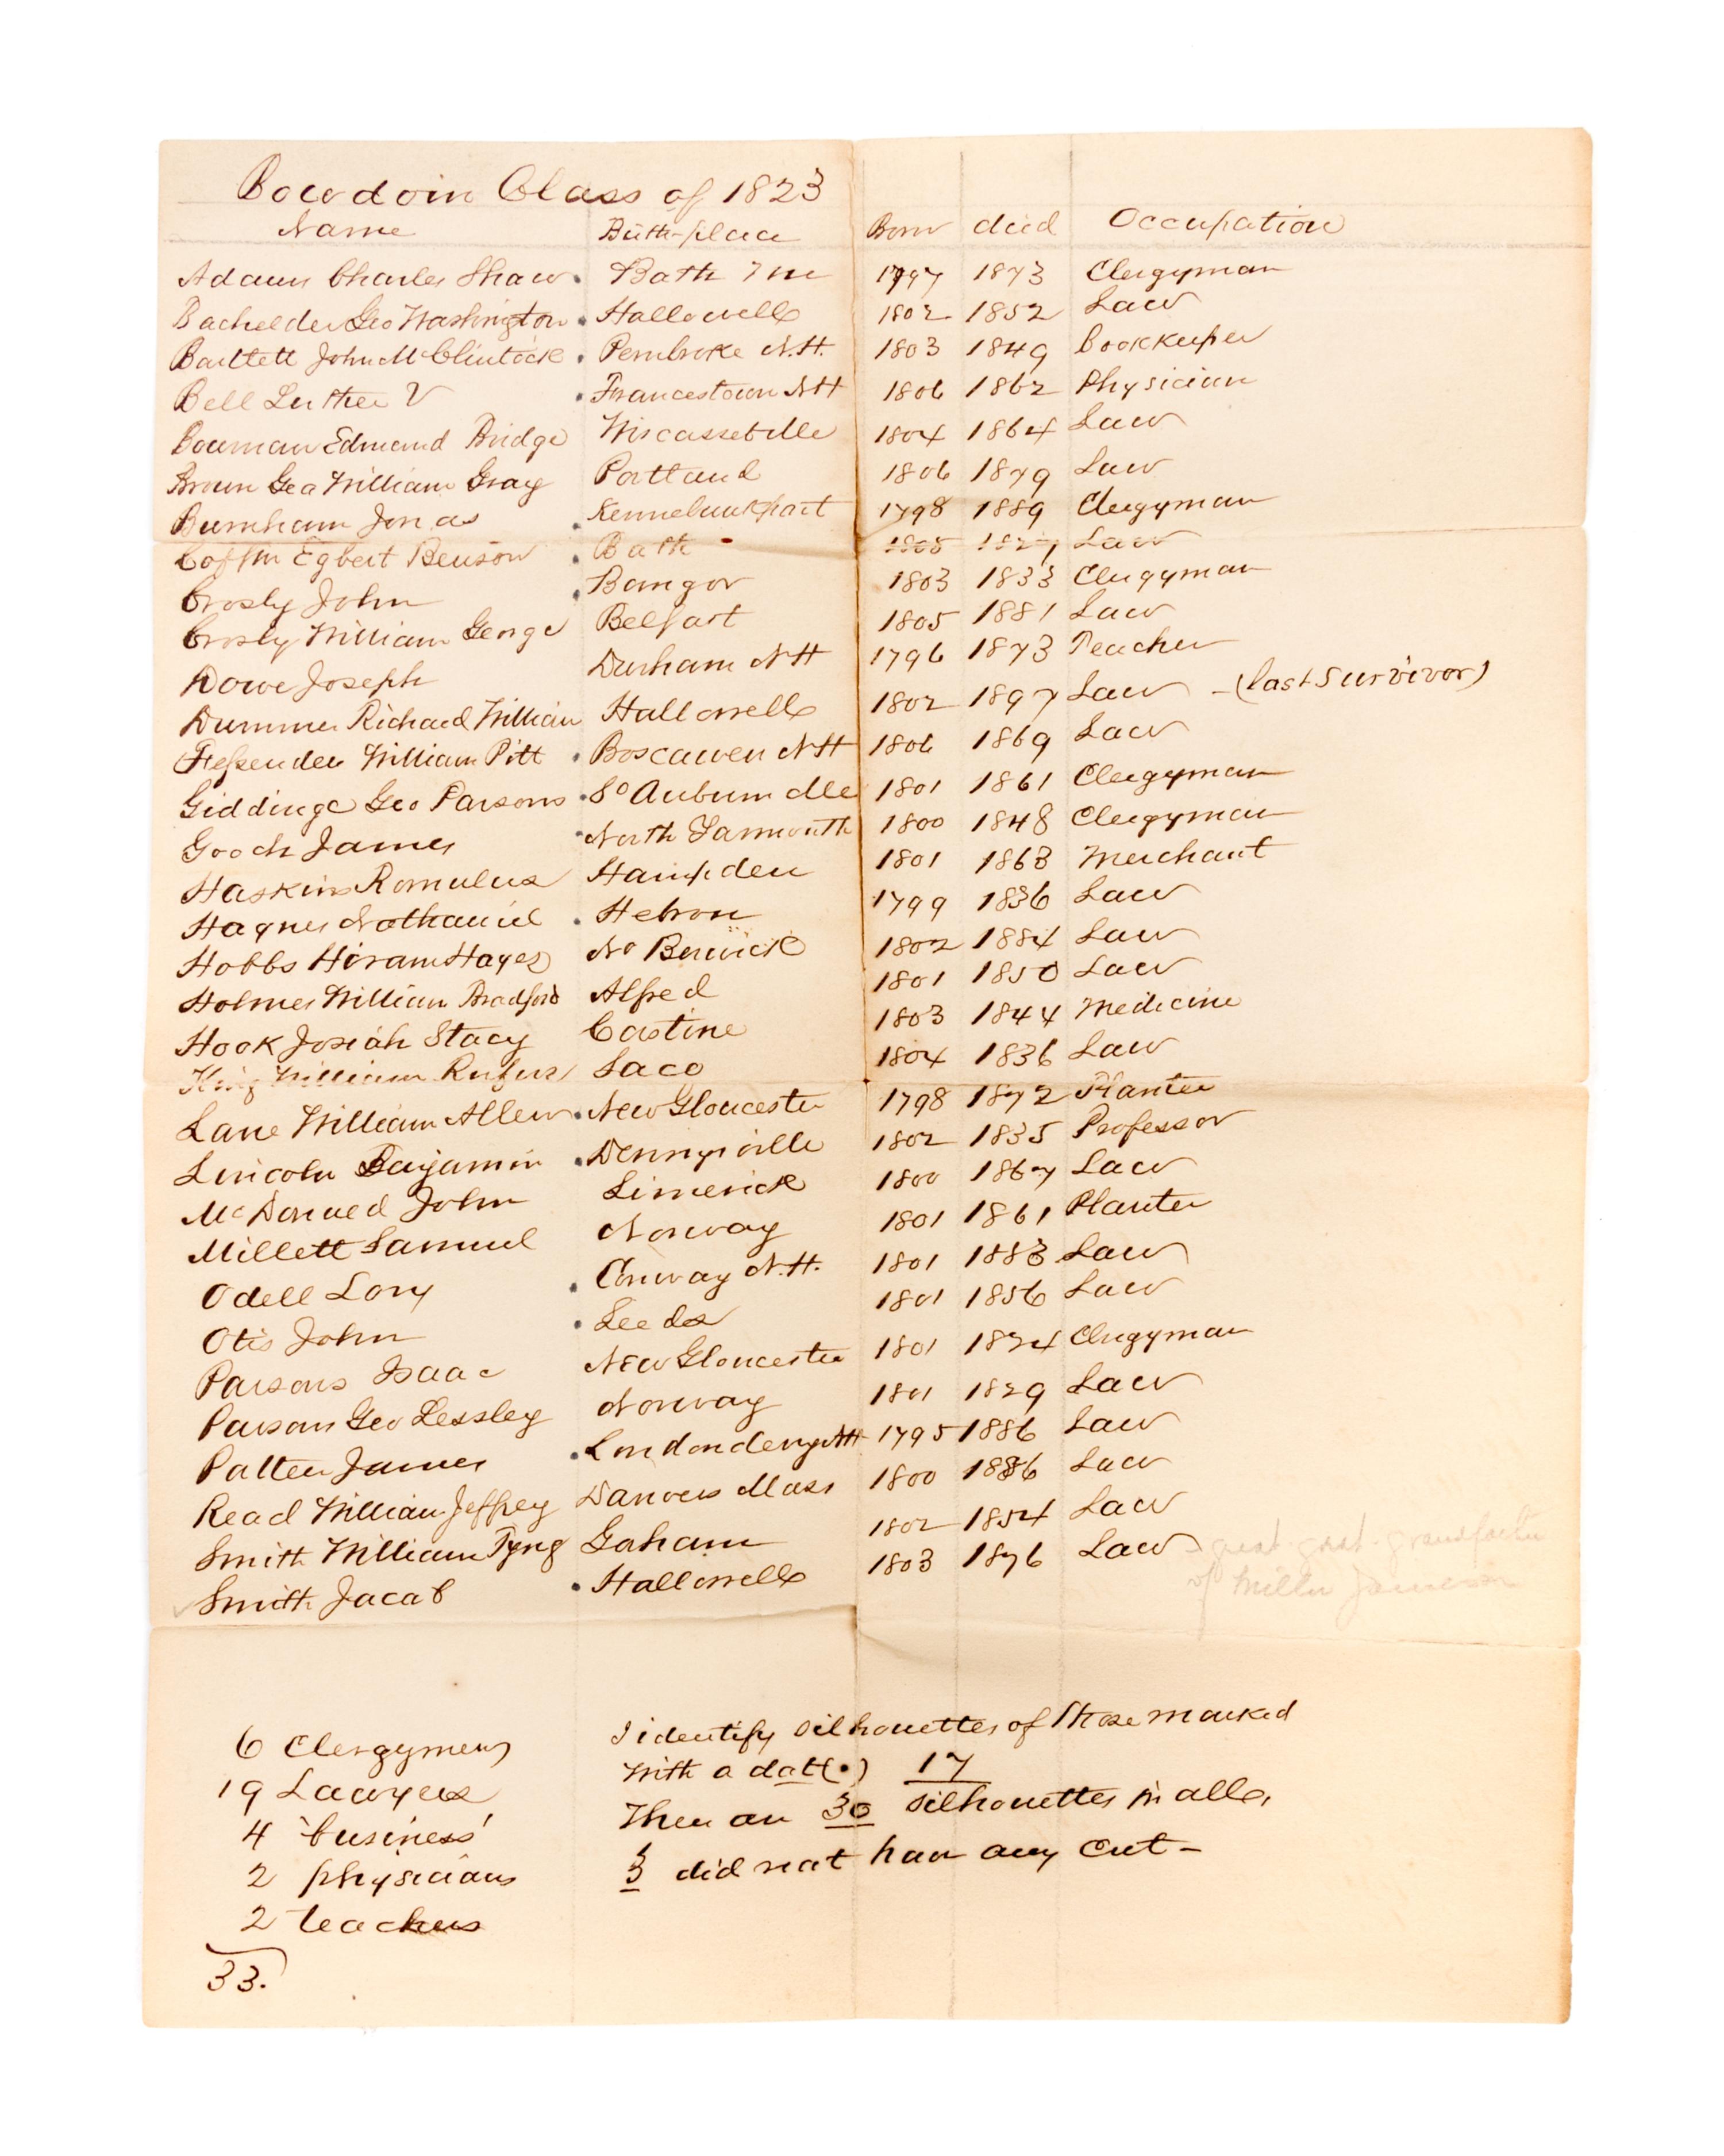 Bowdoin Class of 1823
Name Birth-place Born died Occupation
Adams Charles Shaw . Bath Me 1797 1873 Clergyman
Bachelder Geo Washington . Hallowell 1802 1852 Law
Bartlett John McClintock . Pembroke N.H. 1803 1849 Bookkeeper
Bell Luther V . Francestown NH 1806 1862 Physician
Bowman Edmund Bridge Wiscasset Me 1804 1864 Law
Brown Geo William Gray Portland 1806 1879 Law
Burnham Jonas . Kennebunkport 1798 1889 Clergyman
Coffin Egbert Benson . Bath 1805 1827 Law
Crosby John . Bangor 1803 1833 Clergyman
Crosby William George Belfast 1805 1881 Law
Dowe Joseph Durham NH 1796 1873 Teacher
Dummer Richard William Hallowell 1802 1897 Law - (last survivor)
Fessenden William Pitt . Boscawen NH 1806 1869 Law
Giddinge Geo Parsons . So Auburn Me 1801 1861 Clergyman
Gooch James . North Yarmouth 1800 1848 Clergyman
Haskins Romulus Hampden 1801 1863 Merchant
Haynes Nathaniel . Hebron 1799 1836 Law
Hobbs Hiram Hayes No Berwick 1802 1884 Law
Holmes William Bradford Alfred 1801 1850 Law
Hook Josiah Stacy Castine 1803 1844 Medicine
King William Rufus Saco 1804 1836 Law
Lane William Allen . New Gloucester 1798 1872 Planter
Lincoln Benjamin . Dennysville 1802 1835 Professor
McDonald John Limerick 1800 1867 Law
Millett Samuel Norway 1801 1861 Planter
Odell Lory . Conway N.H. 1801 1883 Law
Otis John . Leeds 1801 1856 Law
Parsons Isaac New Gloucester 1801 1824 Clergyman
Parson Geo Lessley Norway 1801 1829 Law
Patten James . Londonderry NH 1795 1886 Law
Read William Jeffrey Danvers Mass 1800 1886 Law
Smith William Tyng Goham 1802 1854 Law
Smith Jacob . Hallowell 1803 1876 Law - great-great-grandfather
of Miller Jameson
6 Clergymen
19 Lawyers
4 'business'
2 physicians
2 teachers
33.
I identify silhouettes of those marked
with a dot (•) 17
There are 30 silhouettes in all,
3 did not have any cut -